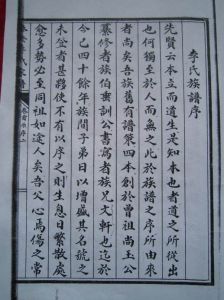 李氏族譜序
先賢云本立而道生是知本也者道之所從出
也何獨至於人而無之此於族譜之序所由來
者尚矣吾族舊有譜策四本創於曾祖尚玉公
纂修者族伯 訓公書寫者族兄文軒也迄於
今已四十餘年族間子弟日以增盛其名號之
未登者甚夥使不有以序之則生息日繁散處
愈多勢必至同祖如途人矣吾父心焉傷之常